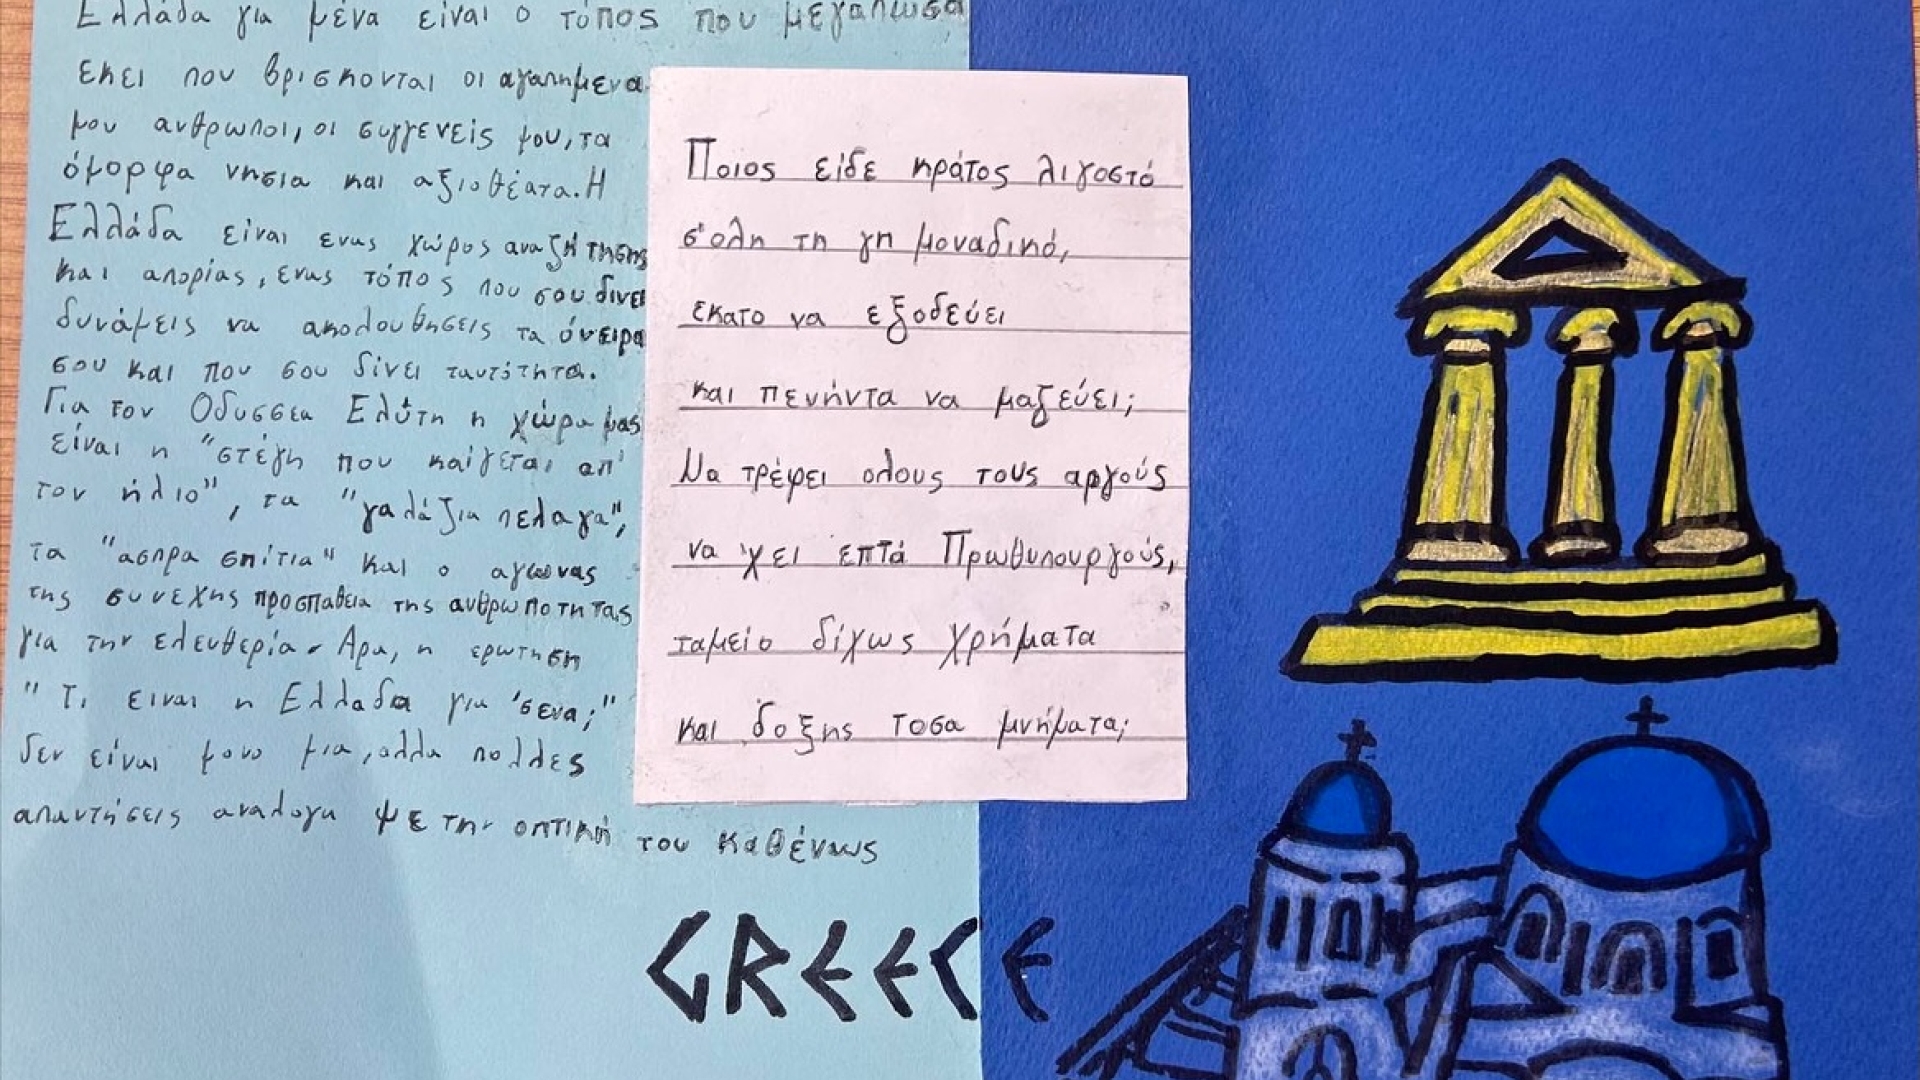 Ελλάδα για μένα είναι ο τόπος που μεγαλωσα
εκει που βρισκονται οι αγαπημενα
μου ανθρωποι, οι συγγενείς μου, τα
όμορφα νησια και αξιοθέατα. Η
Ελλάδα είναι ενας χώρος αναζήτησης
και απορίας, ενας τόπος που σου δινει
δυνάμεις να ακολουθησεις τα όνειρα
σου και που σου δίνει ταυτότητα.
Για τον Οδυσσεα Ελύτη η χώρα μας
είναι η "στέγη που καίγεται απ'
τον ήλιο", τα "γαλάζια πελαγα",
τα "ασπρα σπίτια" και ο αγωνας
της συνεχης προσπαθεια της ανθρωποτητας
για την ελευθερία. Αρα, η ερωτηση
"Τι ειναι η Ελλαδα για 'σενα;"
δεν είναι μονο μια, αλλα πολλες
απαντήσεις αναλογα με την οπτική του καθένως
Ποιος είδε κράτος λιγοστό
σ'ολη τη γη μοναδικό,
εκατο να εξοδεύει
και πενήντα να μαζεύει;
Να τρέφει ολους τους αργούς
να 'χει επτά Πρωθυπουργούς,
ταμείο δίχως χρήματα
και δοξης τοσα μνήματα;
GREECE